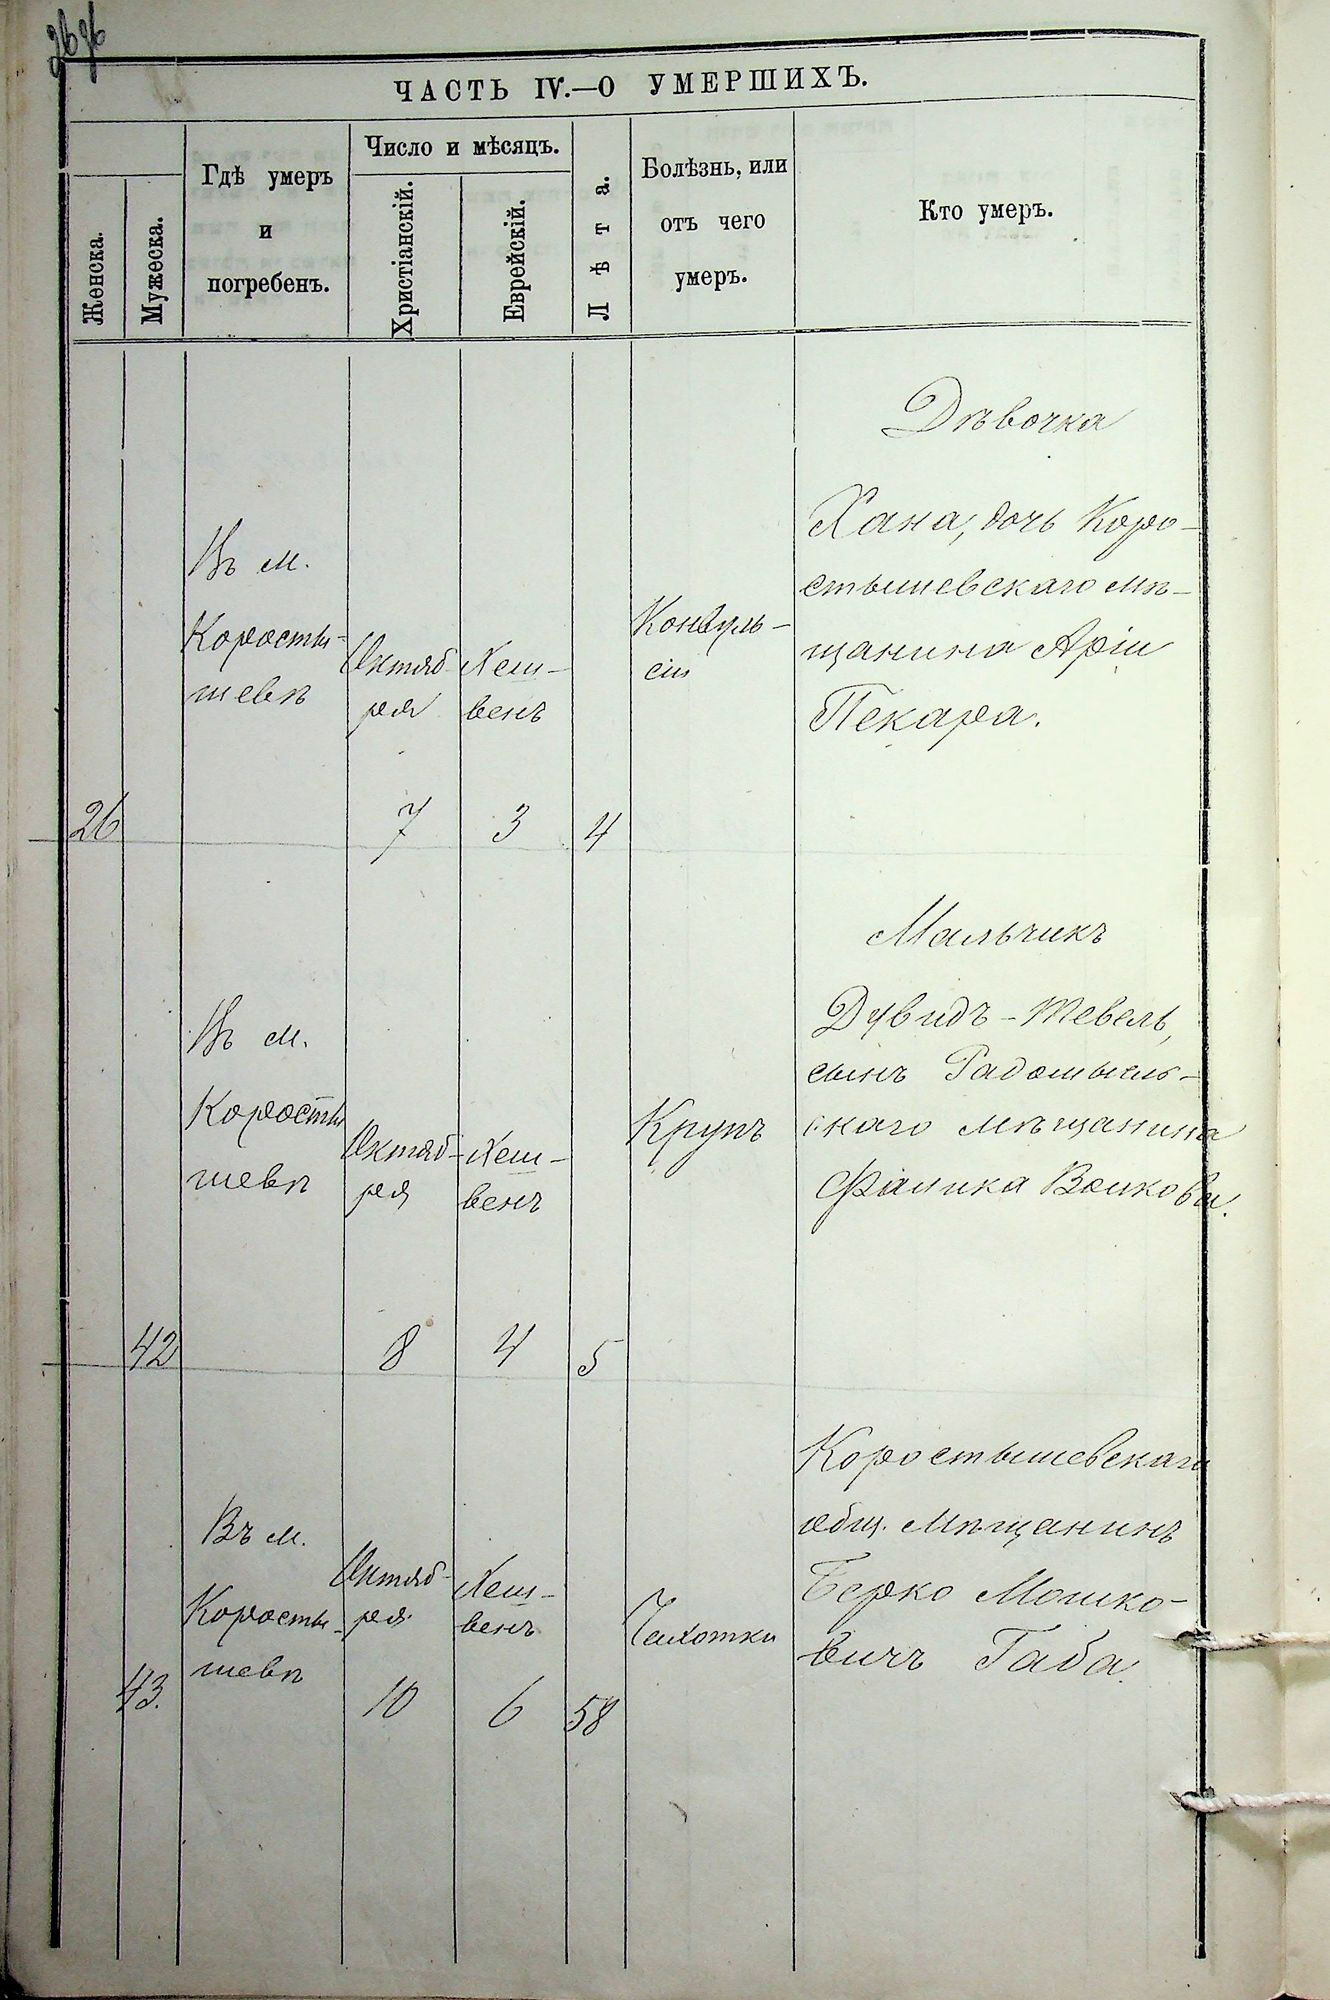 ЧАСТЬ IV.—О УМЕРШИХЪ.
Женска.
Мужеска.
Гдѣ умеръ
и
погребенъ.
Число и мѣсяцъ.
Христіанскій.
Еврейскій.
Лѣта.
Болѣзнь, или
отъ чего
умеръ.
Кто умеръ.
26
Въ м.
Коросты-
шевѣ
Октяб-
ря
7
Хеш-
венъ
3
4
Конвуль-
сіи
Дѣвочка
Хана, дочь Коро-
стышевскаго мѣ-
щанина Аріи
Пекара.
42
Въ м.
Коросты
шевѣ
Октяб-
ря
8
Хеш-
венъ
4
5
Крупъ
Мальчикъ
Дувидъ-Тевель,
сынъ Радомысль-
скаго мѣщанина
Фалика Волкова.
43.
Въ м.
Коросты-
шевѣ
Октяб-
ря
10
Хеш-
венъ
6
58
Чахотки
Коростышевскаго
общ. мѣщанинъ
Берко Мошко-
вичъ Габа.